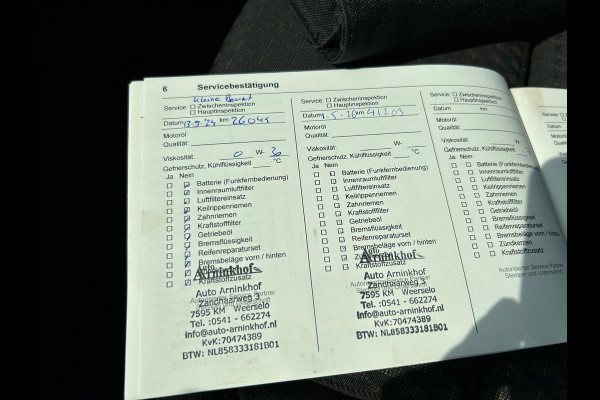 6 Servicebestätigung
Kleine Beurt
Service: Zwischeninspektion
Hauptinspektion
Datum km 26045
Motoröl
Qualität:
Viskosität: 0 W- 30
Gefrierschutz, Kühlflüssigkeit °C
Ja Nein
Batterie (Funkfernbedienung)
Innenraumluftfilter
Luftfiltereinsatz
Keilrippenriemen
Zahnriemen
Kraftstofffilter
Getriebeöl
Bremsflüssigkeit
Reifenreparaturset
Bremsbeläge vorn / hinten
Kraftstoffzusatz
Auto
Arninkhof
Auto Arninkhof
Zandhaarweg 3
7595 KM Weerselo
Tel. :0541 - 662274
Info@auto-arninkhof.nl
KvK:70474389
BTW: NL858333181B01
Service: Zwischeninspektion
Hauptinspektion
Datum km
Motoröl
Qualität:
Viskosität: W-
Gefrierschutz, Kühlflüssigkeit °C
Ja Nein
Batterie (Funkfernbedienung)
Innenraumluftfilter
Luftfiltereinsatz
Keilrippenriemen
Zahnriemen
Kraftstofffilter
Getriebeöl
Bremsflüssigkeit
Reifenreparaturset
Bremsbeläge vorn / hinten
Kraftstoffzusatz
Auto
Arninkhof
Auto Arninkhof
Zandhaarweg 3
7595 KM Weerselo
Tel. :0541 - 662274
Info@auto-arninkhof.nl
KvK:70474389
BTW: NL858333181B01
Service: Zwischeninspektion
Hauptinspektion
Datum km
Motoröl
Qualität:
Viskosität: W-
Gefrierschutz, Kühlflüssigkeit °C
Ja Nein
Batterie (Funkfernbedienung)
Innenraumluftfilter
Luftfiltereinsatz
Keilrippenriemen
Zahnriemen
Kraftstofffilter
Getriebeöl
Bremsflüssigkeit
Reifenreparaturset
Bremsbeläge vorn / hinten
Zündkerzen
Kraftstoffzusatz
Autorisierter Service Partner
Stempel und Unterschrift